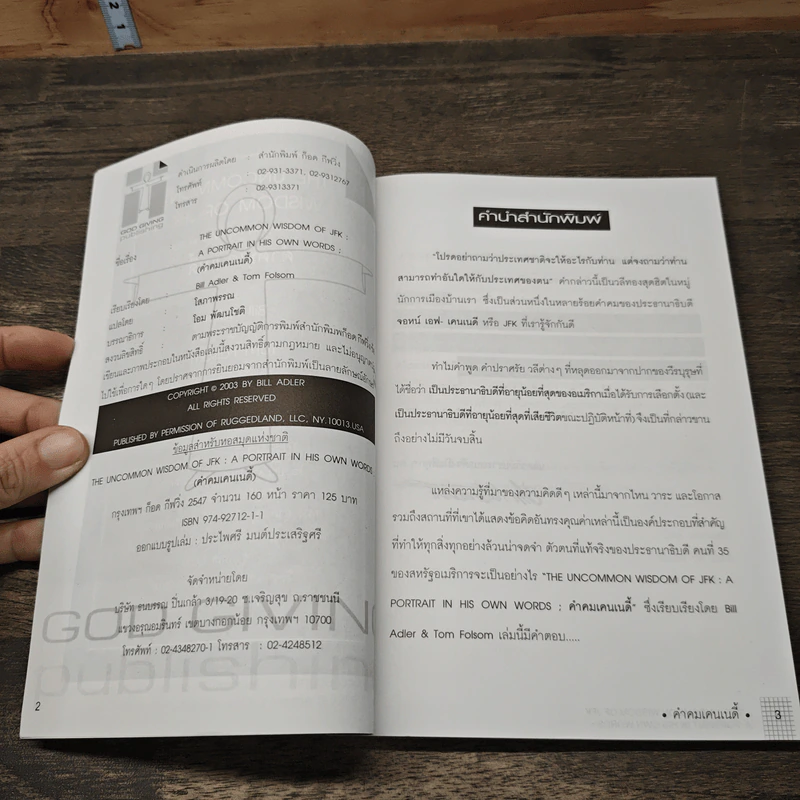 GOD GIVING
publishing
ดำเนินการผลิตโดย : สำนักพิมพ์ ก็อด กีฟวิ่ง
โทรศัพท์ : 02-931-3371, 02-9312767
โทรสาร : 02-9313371
ชื่อเรื่อง : THE UNCOMMON WISDOM OF JFK :
A PORTRAIT IN HIS OWN WORDS ;
(คำคมเคนเนดี้)
เรียบเรียงโดย : Bill Adler & Tom Folsom
แปลโดย : โสภาพรรณ
บรรณาธิการ : โอม พัฒนโชติ
สงวนลิขสิทธิ์ : ตามพระราชบัญญัติการพิมพ์สำนักพิมพ์ก็อด กีฟวิ่ง
เขียนและภาพประกอบในหนังสือเล่มนี้สงวนสิทธิ์ตามกฎหมาย และไม่อนุญาต
ไปใช้เพื่อการใดๆ โดยปราศจากการยินยอมจากสำนักพิมพ์เป็นลายลักษณ์อักษร
COPYRIGHT © 2003 BY BILL ADLER
ALL RIGHTS RESERVED
PUBLISHED BY PERMISSION OF RUGGEDLAND, LLC, NY.10013.USA
ข้อมูลสำหรับหอสมุดแห่งชาติ
THE UNCOMMON WISDOM OF JFK : A PORTRAIT IN HIS OWN WORDS
(คำคมเคนเนดี้)
กรุงเทพฯ ก็อด กีฟวิ่ง 2547 จำนวน 160 หน้า ราคา 125 บาท
ISBN 974-92712-1-1
ออกแบบรูปเล่ม : ประไพศรี มนต์ประเสริฐศรี
จัดจำหน่ายโดย
บริษัท ธนบรรณ ปิ่นเกล้า 3/19-20 ซ.เจริญสุข ถ.ราชชนนี
แขวงอรุณอมรินทร์ เขตบางกอกน้อย กรุงเทพฯ 10700
โทรศัพท์ : 02-4348270-1 โทรสาร : 02-4248512
GOD GIVING
publishing
2
คำนำสำนักพิมพ์
"โปรดอย่าถามว่าประเทศชาติจะให้อะไรกับท่าน แต่จงถามว่าท่าน
สามารถทำอันใดให้กับประเทศของตน" คำกล่าวนี้เป็นวลีทองสุดฮิตในหมู่
นักการเมืองบ้านเรา ซึ่งเป็นส่วนหนึ่งในหลายร้อยคำคมของประธานาธิบดี
จอห์น เอฟ- เคนเนดี หรือ JFK ที่เรารู้จักกันดี
ทำไมคำพูด คำปราศรัย วลีต่างๆ ที่หลุดออกมาจากปากของวีรบุรุษที่
ได้ชื่อว่า เป็นประธานาธิบดีที่อายุน้อยที่สุดของอเมริกาเมื่อได้รับการเลือกตั้ง (และ
เป็นประธานาธิบดีที่อายุน้อยที่สุดที่เสียชีวิตขณะปฏิบัติหน้าที่) จึงเป็นที่กล่าวขาน
ถึงอย่างไม่มีวันจบสิ้น
แหล่งความรู้ที่มาของความคิดดีๆ เหล่านี้มาจากไหน วาระ และโอกาส
รวมถึงสถานที่ที่เขาได้แสดงข้อคิดอันทรงคุณค่าเหล่านี้เป็นองค์ประกอบที่สำคัญ
ที่ทำให้ทุกสิ่งทุกอย่างล้วนน่าจดจำ ตัวตนที่แท้จริงของประธานาธิบดี คนที่ 35
ของสหรัฐอเมริกาจะเป็นอย่างไร "THE UNCOMMON WISDOM OF JFK : A
PORTRAIT IN HIS OWN WORDS ; คำคมเคนเนดี้" ซึ่งเรียบเรียงโดย Bill
Adler & Tom Folsom เล่มนี้มีคำตอบ.....
• คำคมเคนเนดี้ • 3
2
1